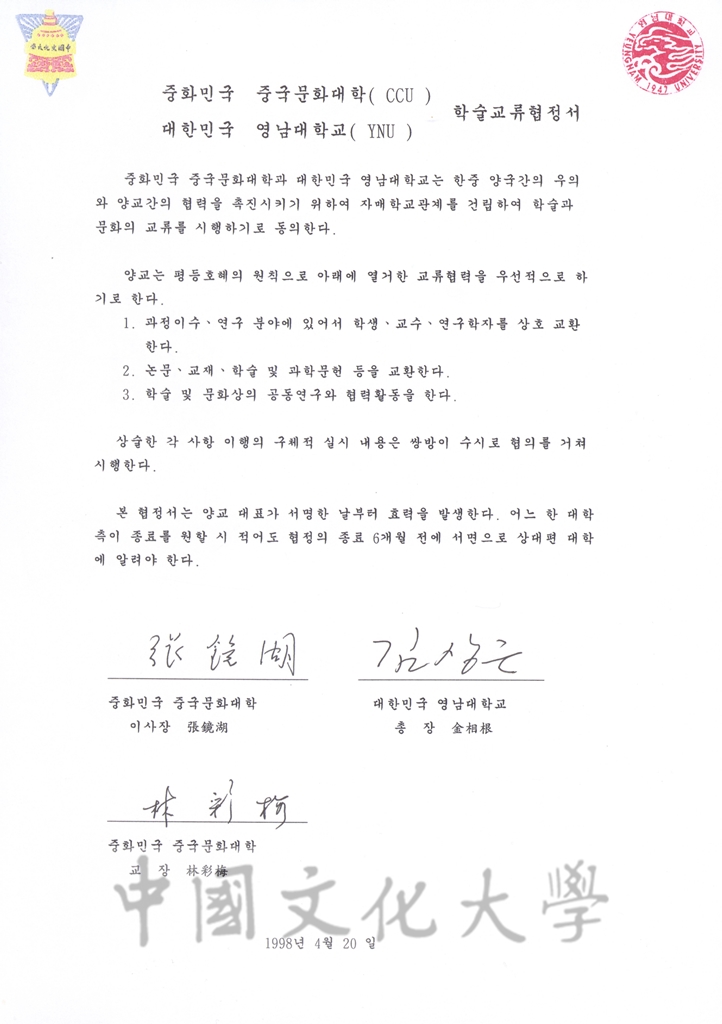 中國文化大學
영남대학교
YEUNGNAM UNIVERSITY
1947
중화민국 중국문화대학( CCU )
대한민국 영남대학교( YNU )
학술교류협정서
중화민국 중국문화대학과 대한민국 영남대학교는 한중 양국간의 우의
와 양교간의 협력을 촉진시키기 위하여 자매학교관계를 건립하여 학술과
문화의 교류를 시행하기로 동의한다.
양교는 평등호혜의 원칙으로 아래에 열거한 교류협력을 우선적으로 하
기로 한다.
1. 과정이수、연구 분야에 있어서 학생、교수、연구학자를 상호 교환
한다.
2. 논문、교재、학술 및 과학문헌 등을 교환한다.
3. 학술 및 문화상의 공동연구와 협력활동을 한다.
상술한 각 사항 이행의 구체적 실시 내용은 쌍방이 수시로 협의를 거쳐
시행한다.
본 협정서는 양교 대표가 서명한 날부터 효력을 발생한다. 어느 한 대학
측이 종료를 원할 시 적어도 협정의 종료 6개월 전에 서면으로 상대편 대학
에 알려야 한다.
張鏡湖
김상근
중화민국 중국문화대학
이사장 張鏡湖
대한민국 영남대학교
총 장 金相根
林彩梅
중화민국 중국문화대학
교 장 林彩梅
中國文化大學
1998년 4월 20 일